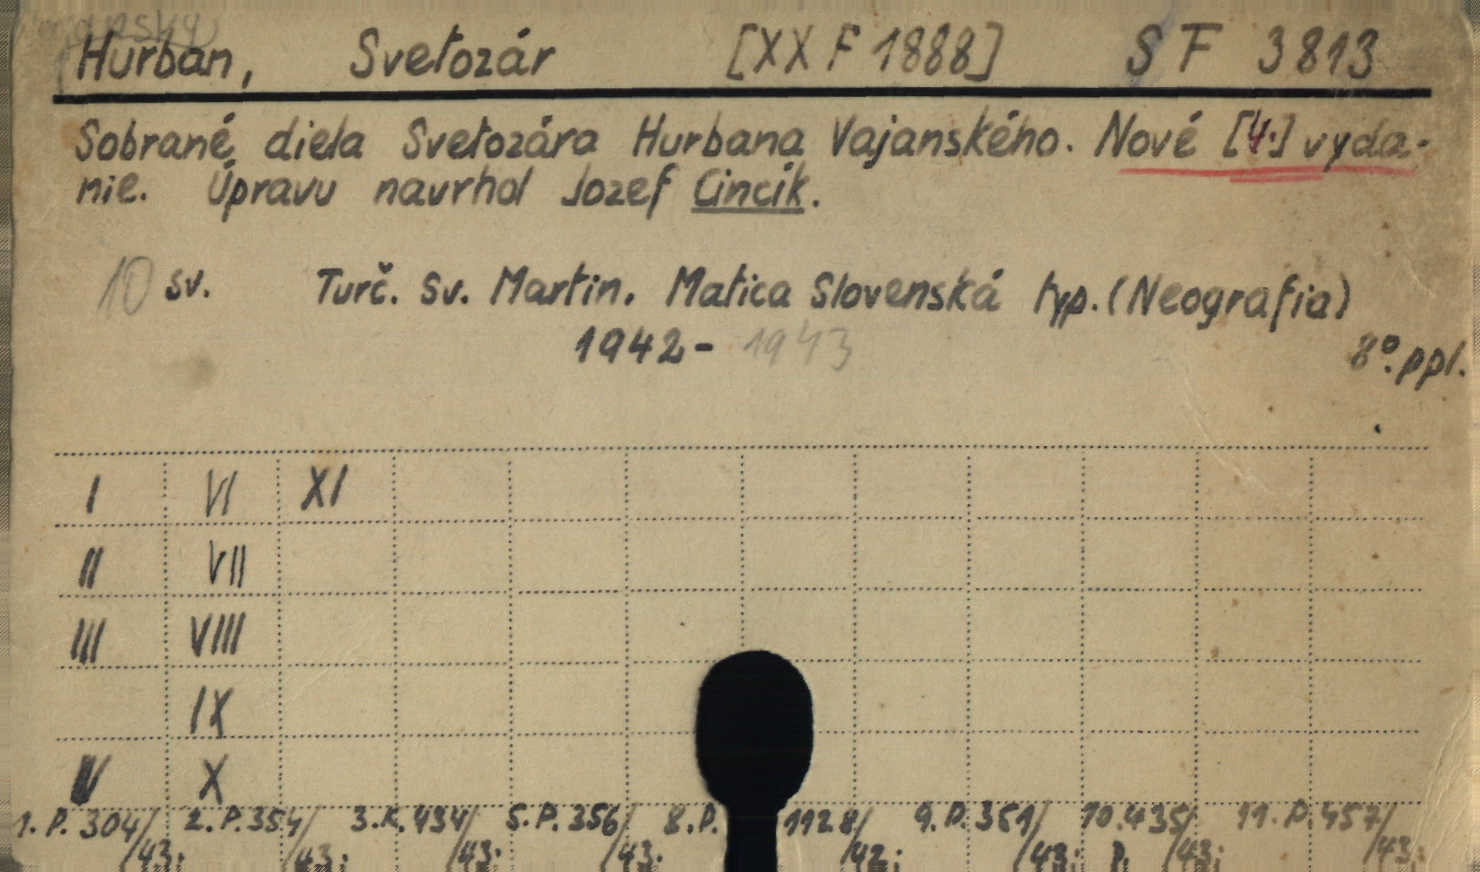 Vajanský
Hurban, Svetozár [XX F 1888] SF 3813
Sobrané diela Svetozára Hurbana Vajanského. Nové [4.] vyda-
nie. Úpravu navrhol Jozef Cincík.
10 sv. Turč. Sv. Martin. Matica Slovenská typ. (Neografia)
1942-1943
8°. ppl.
I VI XI
II VII
III VIII
IX
IV X
1. P. 304/43; 2. P. 354/43; 3. K. 434/43; 5. P. 356/43; 8. P. 1128/42; 9. P. 351/43; 10. P. 435/43; 11. P. 457/43;